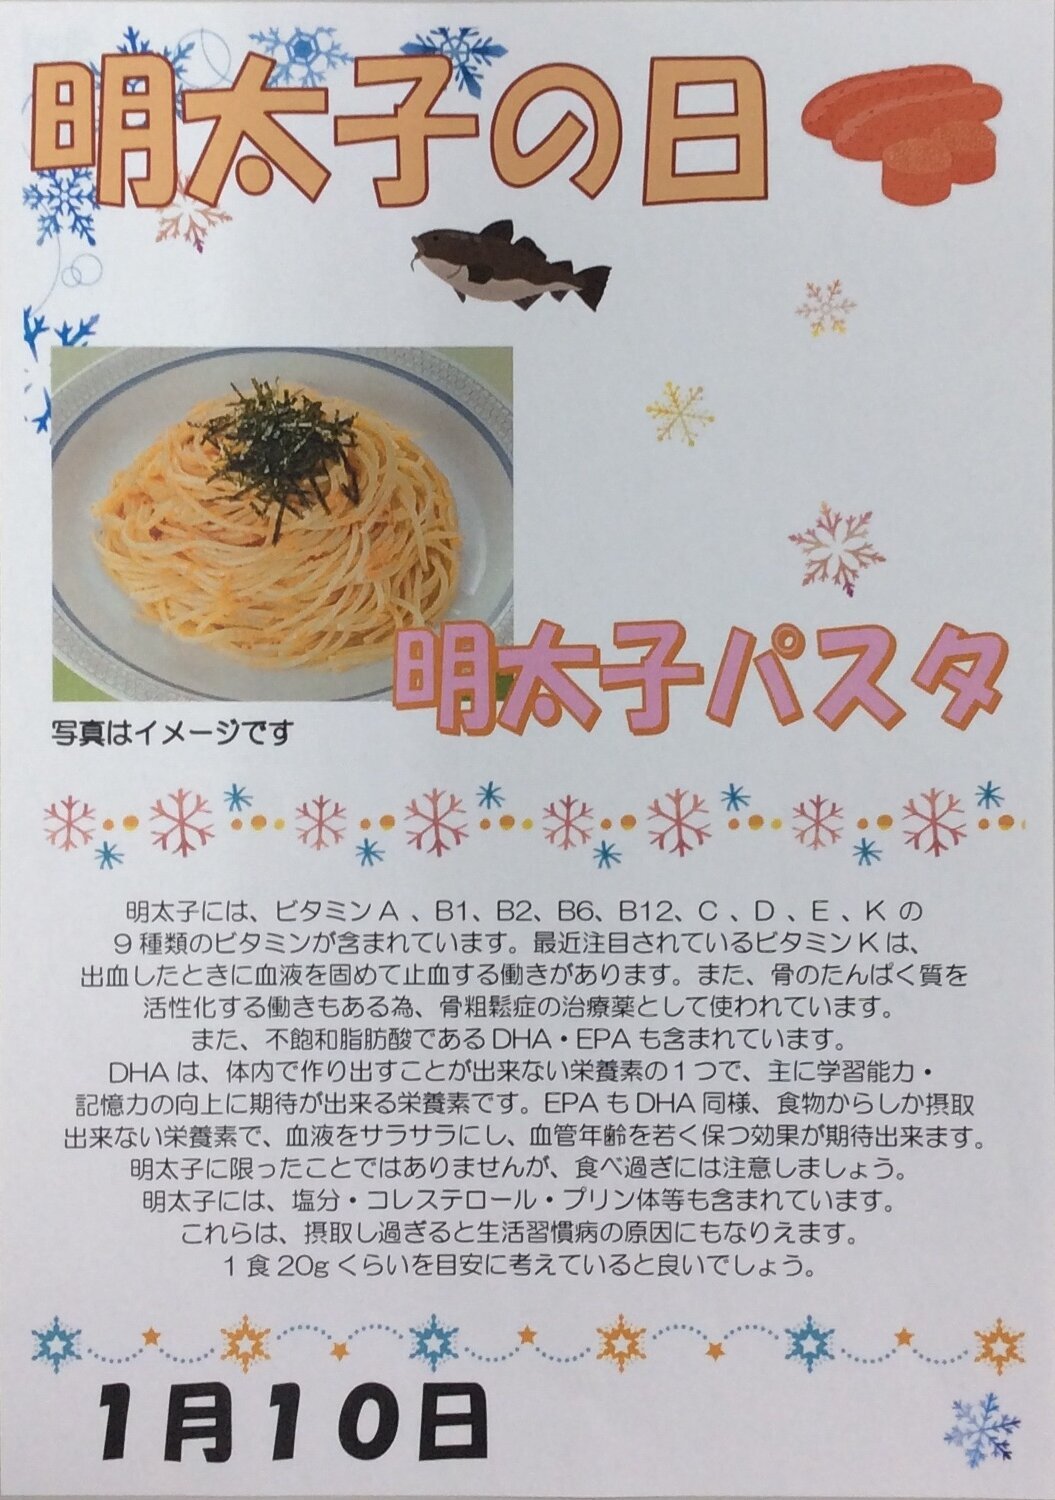 明太子の日
明太子パスタ
写真はイメージです
明太子には、ビタミンA、B1、B2、B6、B12、C、D、E、Kの
9種類のビタミンが含まれています。最近注目されているビタミンKは、
出血したときに血液を固めて止血する働きがあります。また、骨のたんぱく質を
活性化する働きもある為、骨粗鬆症の治療薬として使われています。
また、不飽和脂肪酸であるDHA・EPAも含まれています。
DHAは、体内で作り出すことが出来ない栄養素の1つで、主に学習能力・
記憶力の向上に期待が出来る栄養素です。EPAもDHA同様、食物からしか摂取
出来ない栄養素で、血液をサラサラにし、血管年齢を若く保つ効果が期待出来ます。
明太子に限ったことではありませんが、食べ過ぎには注意しましょう。
明太子には、塩分・コレステロール・プリン体等も含まれています。
これらは、摂取し過ぎると生活習慣病の原因にもなりえます。
1食20gくらいを目安に考えていると良いでしょう。
1月10日